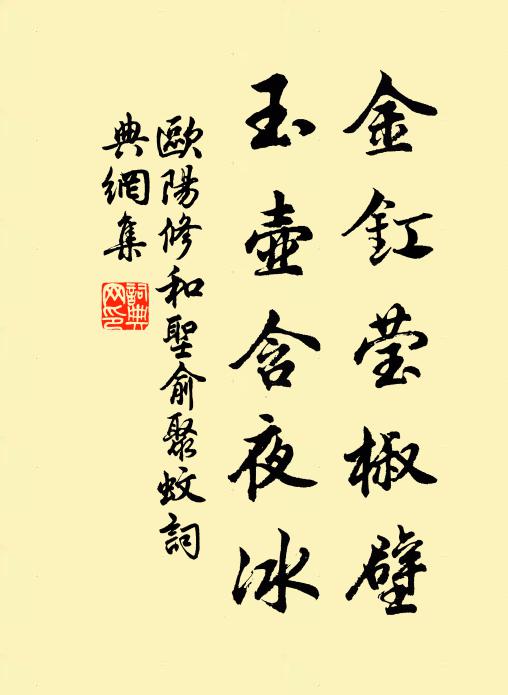 金釭莹椒壁
玉壷含夜冰
歐陽修和聖俞聚蚊詞
典網集
詞典网印